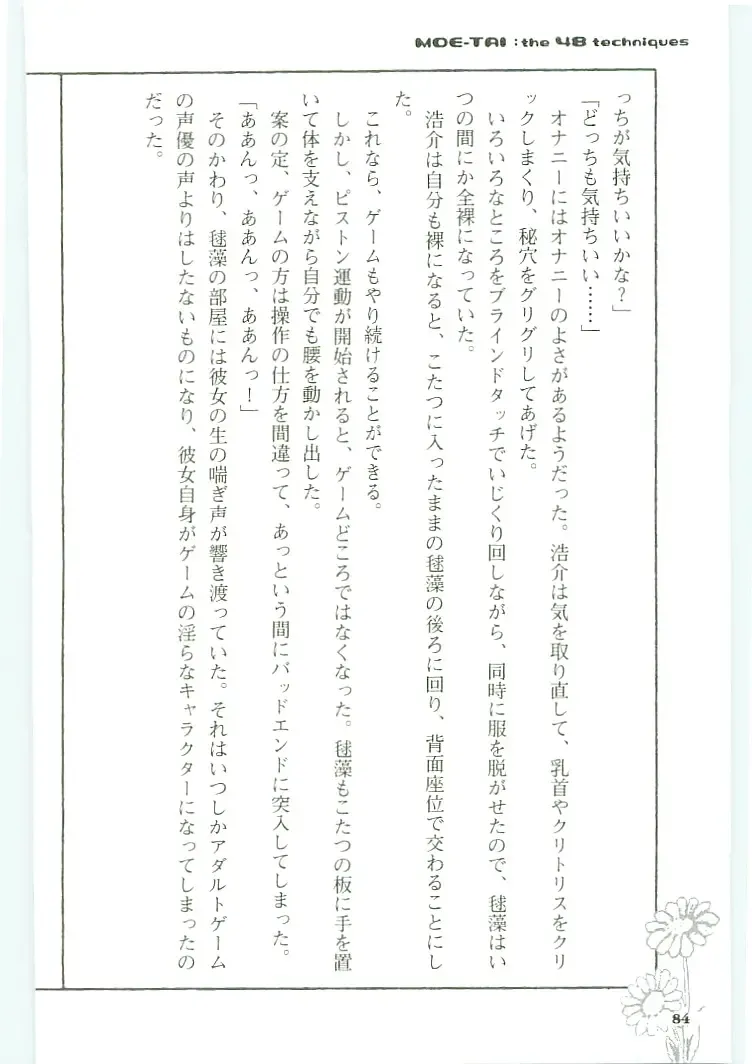 MOE-TAI : the 48 techniques
っちが気持ちいいかな？」
「どっちも気持ちいい……」
オナニーにはオナニーのよさがあるようだった。浩介は気を取り直して、乳首やクリトリスをクリ
ックしまくり、秘穴をグリグリしてあげた。
いろいろなところをブラインドタッチでいじくり回しながら、同時に服を脱がせたので、毬藻はい
つの間にか全裸になっていた。
浩介は自分も裸になると、こたつに入ったままの毬藻の後ろに回り、背面座位で交わることにし
た。
これなら、ゲームもやり続けることができる。
しかし、ピストン運動が開始されると、ゲームどころではなくなった。毬藻もこたつの板に手を置
いて体を支えながら自分でも腰を動かし出した。
案の定、ゲームの方は操作の仕方を間違って、あっという間にバッドエンドに突入してしまった。
「ああんっ、ああんっ、ああんっ！」
そのかわり、毬藻の部屋には彼女の生の喘ぎ声が響き渡っていた。それはいつしかアダルトゲーム
の声優の声よりはしたないものになり、彼女自身がゲームの淫らなキャラクターになってしまったの
だった。
84